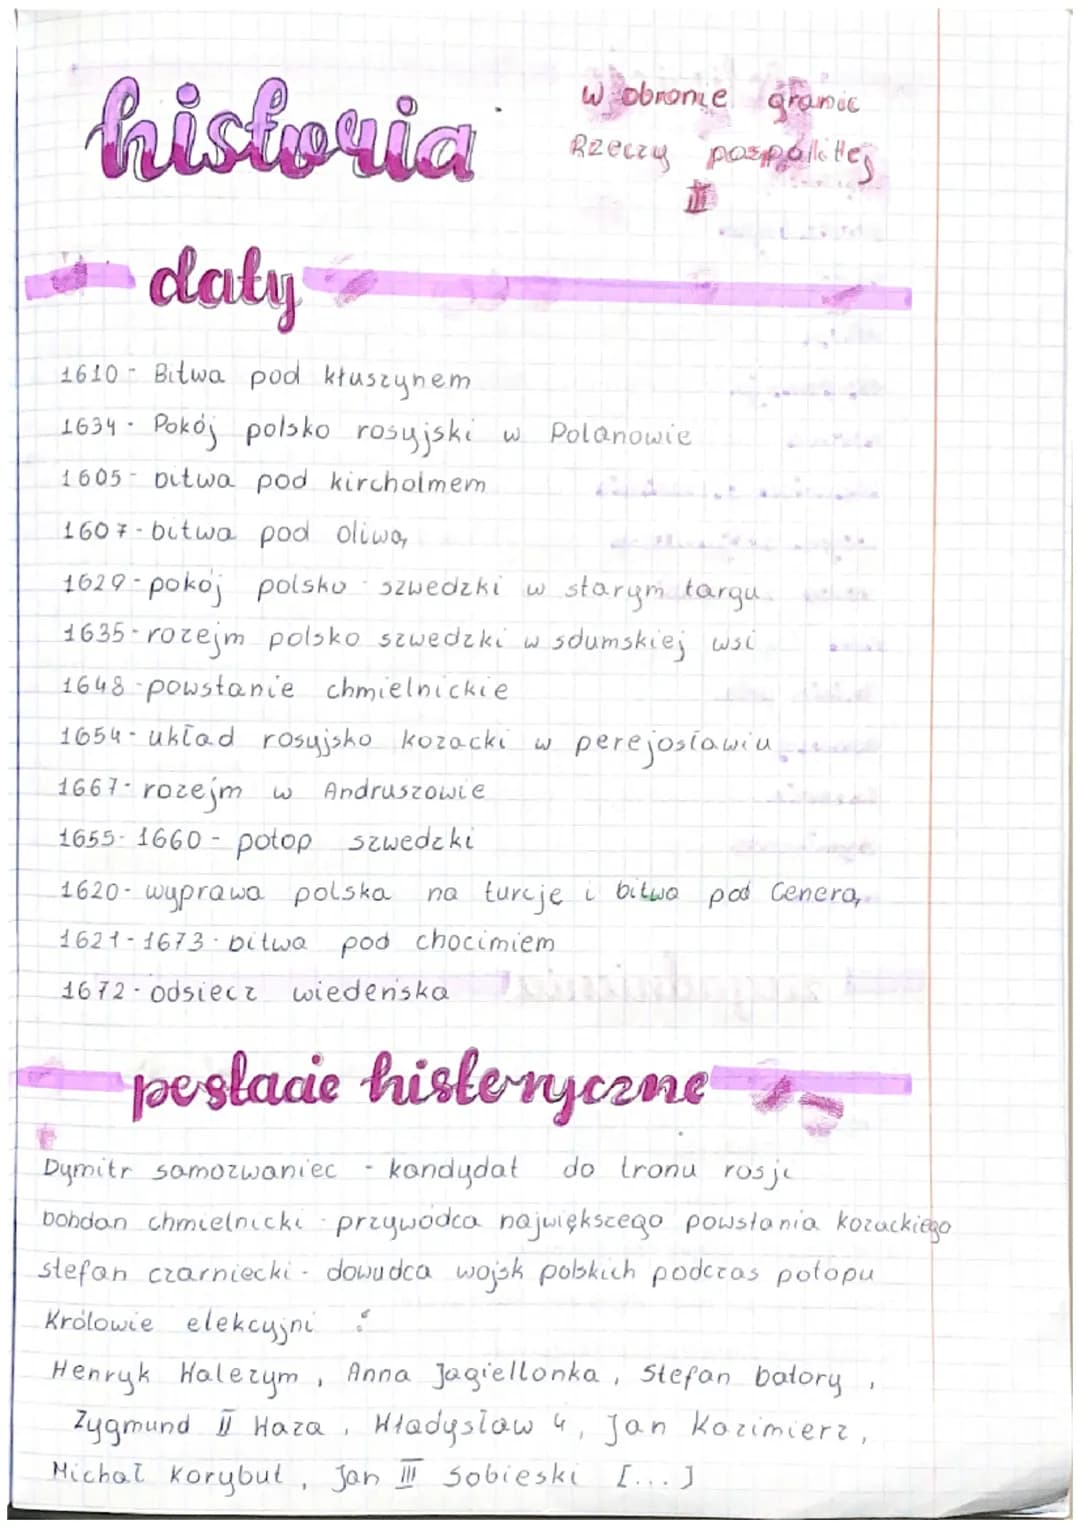 historia
w obronie granic
Rzeczy pospolitej
III
daty
1610 - Bitwa pod kłuszynem
1634 - Pokój polsko rosyjski w Polanowie
1605 - bitwa pod kircholmem
1607 - bitwa pod oliwą
1629 - pokój polsko - szwedzki w starym targu
1635 - rozejm polsko szwedzki w sdumskiej wsi
1648 - powstanie chmielnickie
1654 - układ rosyjsko kozacki w perejosławiu
1667 - rozejm w Andruszowie
1655 - 1660 - potop szwedzki
1620 - wyprawa polska na turcje i bitwa pod Cenerą
1621 - 1673 - bitwa pod chocimiem
1672 - odsiecz wiedeńska
postacie historyczne
Dymitr samozwaniec - kandydat do tronu rosji
bohdan chmielnicki - przywódca największego powstania kozackiego
stefan czarniecki - dowudca wojsk polskich podczas potopu
Królowie elekcyjni :
Henryk Walezym , Anna Jagiellonka , Stefan batory ,
Zygmund II Waza , Władysław 4 , Jan Kazimierz ,
Michał Korybut , Jan III Sobieski [...]